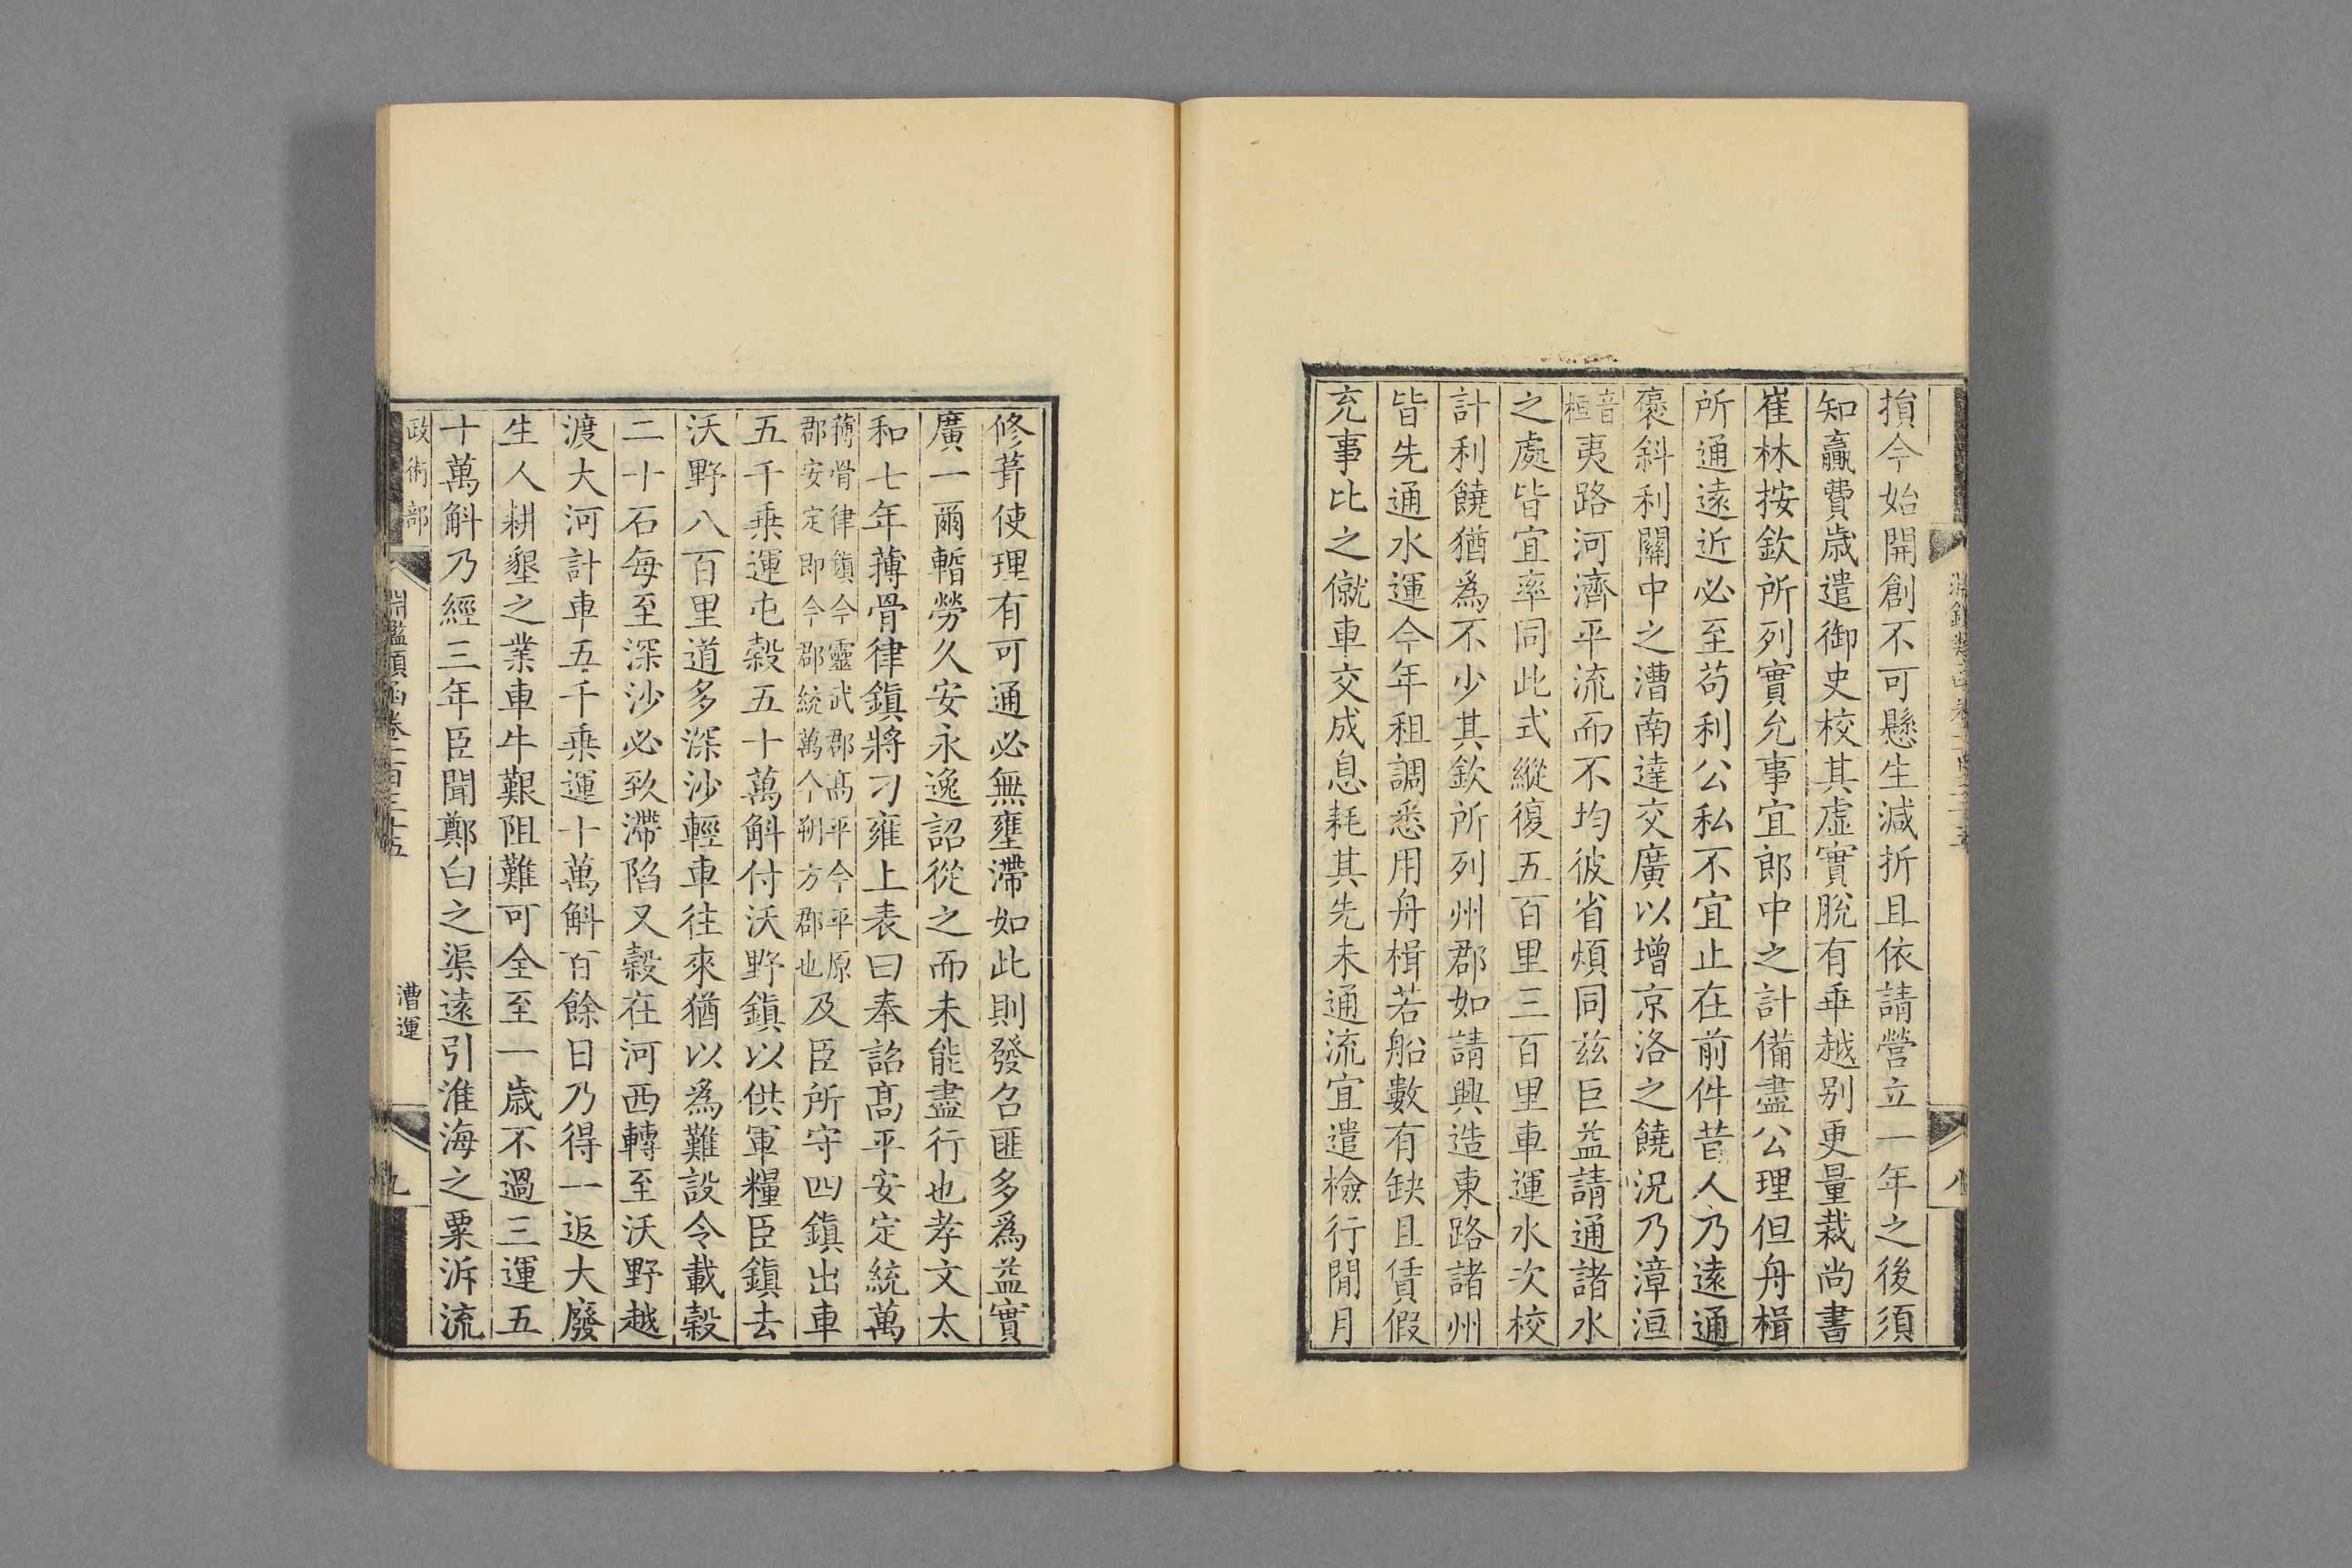 損今始開創不可懸生減折且依請營立一年之後須
知贏費歳遣御史校其虛實脫有乖越别更量裁尚書
崔林按欽所列實允事宜郎中之計備盡公理但舟楫
所通遠近必至苟利公私不宜止在前件昔人乃遠通
褒斜利關中之漕南達交廣以增京洛之饒況乃漳洹
音桓夷路河濟平流而不均彼省煩同兹巨益請通諸水
之處皆宜率同此式縱復五百里三百里車運水次校
計利饒猶爲不少其欽所列州郡如請興造東路諸州
皆先通水運今年租調悉用舟楫若船數有缺且賃假
充事比之僦車交成息耗其先未通流宜遣檢行閒月
修葺使理有可通必無壅滯如此則發召匪多爲益實
廣一爾暫勞久安永逸詔從之而未能盡行也孝文太
和七年薄骨律鎮將刁雍上表曰奉詔高平安定統萬
薄骨律鎮今靈武郡高平今平原
郡安定即今郡統萬今朔方郡也及臣所守四鎮出車
五千乘運屯穀五十萬斛付沃野鎮以供軍糧臣鎮去
沃野八百里道多深沙輕車往來猶以爲難設令載穀
二十石每至深沙必致滯陷又穀在河西轉至沃野越
渡大河計車五千乘運十萬斛百餘日乃得一返大廢
生人耕墾之業車牛艱阻難可全至一歳不過三運五
十萬斛乃經三年臣聞鄭白之渠遠引淮海之粟泝流
政術部 淵鑑類函卷一百三十五 漕運 九